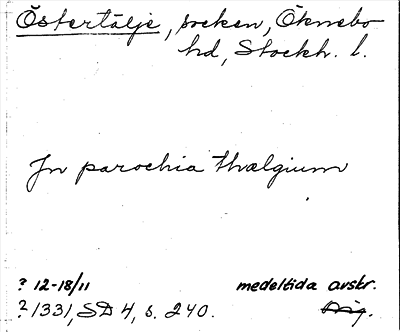 Östertälje, socken, Öknebo
hd, Stockh. l.
In parochia thælgium
? 12-18/11 medeltida avskr.
? 1331, SD 4, s. 240. Orig.